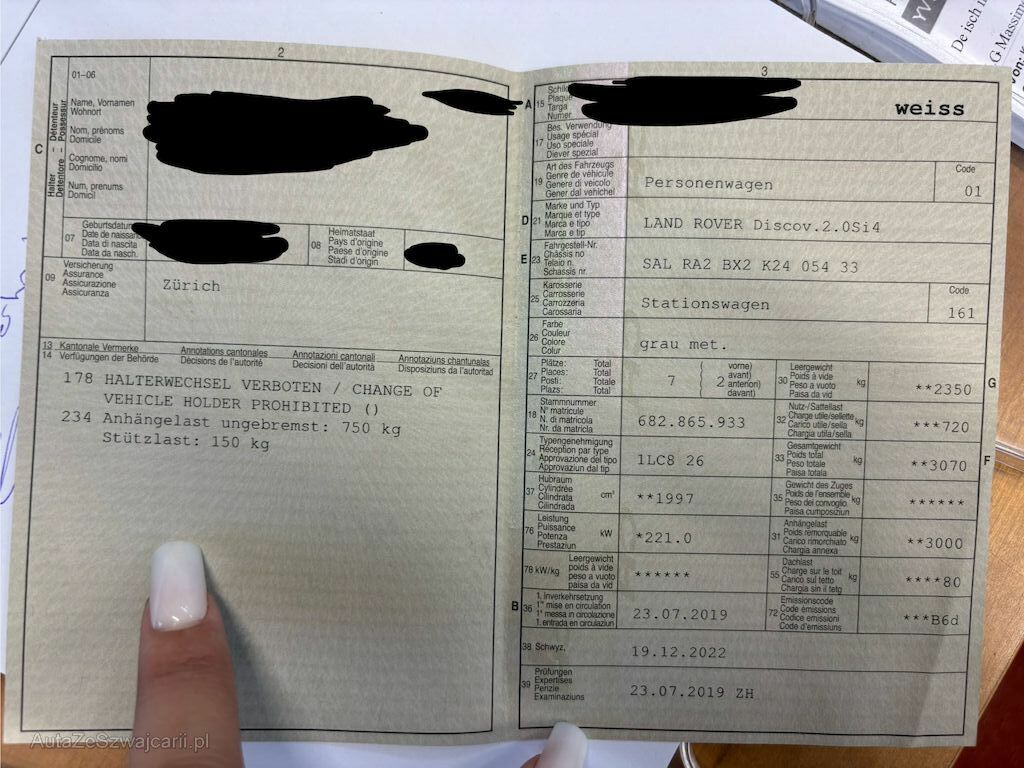 2
01–06
Name, Vornamen
Wohnort
Nom, prénoms
Domicile
Cognome, nomi
Domicilio
Num, prenums
Domicil
C
Halter – Détenteur
Detentore – Possessur
07
Geburtsdatum
Date de naissan
Data di nascita
Data da nasch.
08
Heimatstaat
Pays d'origine
Paese d'origine
Stadi d'origin
09
Versicherung
Assurance
Assicurazione
Assicuranza
Zürich
13 Kantonale Vermerke Annotations cantonales Annotazioni cantonali Annotaziuns chantunalas
14 Verfügungen der Behörde Décisions de l'autorité Decisioni dell'autorità Disposiziuns da l'autoritad
178 HALTERWECHSEL VERBOTEN / CHANGE OF
VEHICLE HOLDER PROHIBITED ()
234 Anhängelast ungebremst: 750 kg
Stützlast: 150 kg
AutaZeSzwajcarii.pl
3
A
15
Schil
Plaque
Targa
Numer
weiss
17
Bes. Verwendung
Usage spécial
Uso speciale
Diever spezial
19
Art des Fahrzeugs
Genre de véhicule
Genere di veicolo
Gener dal vehichel
Personenwagen
Code
01
D
21
Marke und Typ
Marque et type
Marca e tipo
Marca e tip
LAND ROVER Discov.2.0Si4
E
23
Fahrgestell-Nr.
Châssis no
Telaio n.
Schassis nr.
SAL RA2 BX2 K24 054 33
25
Karosserie
Carrosserie
Carrozzeria
Carossaria
Stationswagen
Code
161
26
Farbe
Couleur
Colore
Colur
grau met.
27
Plätze: Total
Places: Total
Posti: Totale
Plazs: Total
7
( 2
vorne)
avant)
anteriori)
davant)
30
Leergewicht
Poids à vide
Peso a vuoto
Paisa da vid
kg
**2350
G
18
Stammnummer
N° matricule
N. di matricola
Nr. da matricla
682.865.933
32
Nutz-/Sattellast
Charge utile/sellette
Carico utile/sella
Chargia utila/sella
kg
***720
24
Typengenehmigung
Réception par type
Approvazione del tipo
Approvaziun dal tip
1LC8 26
33
Gesamtgewicht
Poids total
Peso totale
Paisa totala
kg
**3070
F
37
Hubraum
Cylindrée
Cilindrata
Cilindrada
cm³
**1997
35
Gewicht des Zuges
Poids de l'ensemble
Peso del convoglio
Paisa cumposiziun
kg
******
76
Leistung
Puissance
Potenza
Prestaziun
kW
*221.0
31
Anhängelast
Poids remorquable
Carico rimorchiato
Chargia annexa
kg
**3000
78 kW/kg
Leergewicht
poids à vide
peso a vuoto
paisa da vid
******
55
Dachlast
Charge sur le toit
Carico sul tetto
Chargia sin il tetg
kg
****80
B
36
1. Inverkehrsetzung
1re mise en circulation
1a messa in circolazione
1. entrada en circulaziun
23.07.2019
72
Emissionscode
Code émissions
Codice emissioni
Code d'emissiuns
***B6d
38 Schwyz,
19.12.2022
39
Prüfungen
Expertises
Perizie
Examinaziuns
23.07.2019 ZH
YV
De isch i
G Massimo
von: